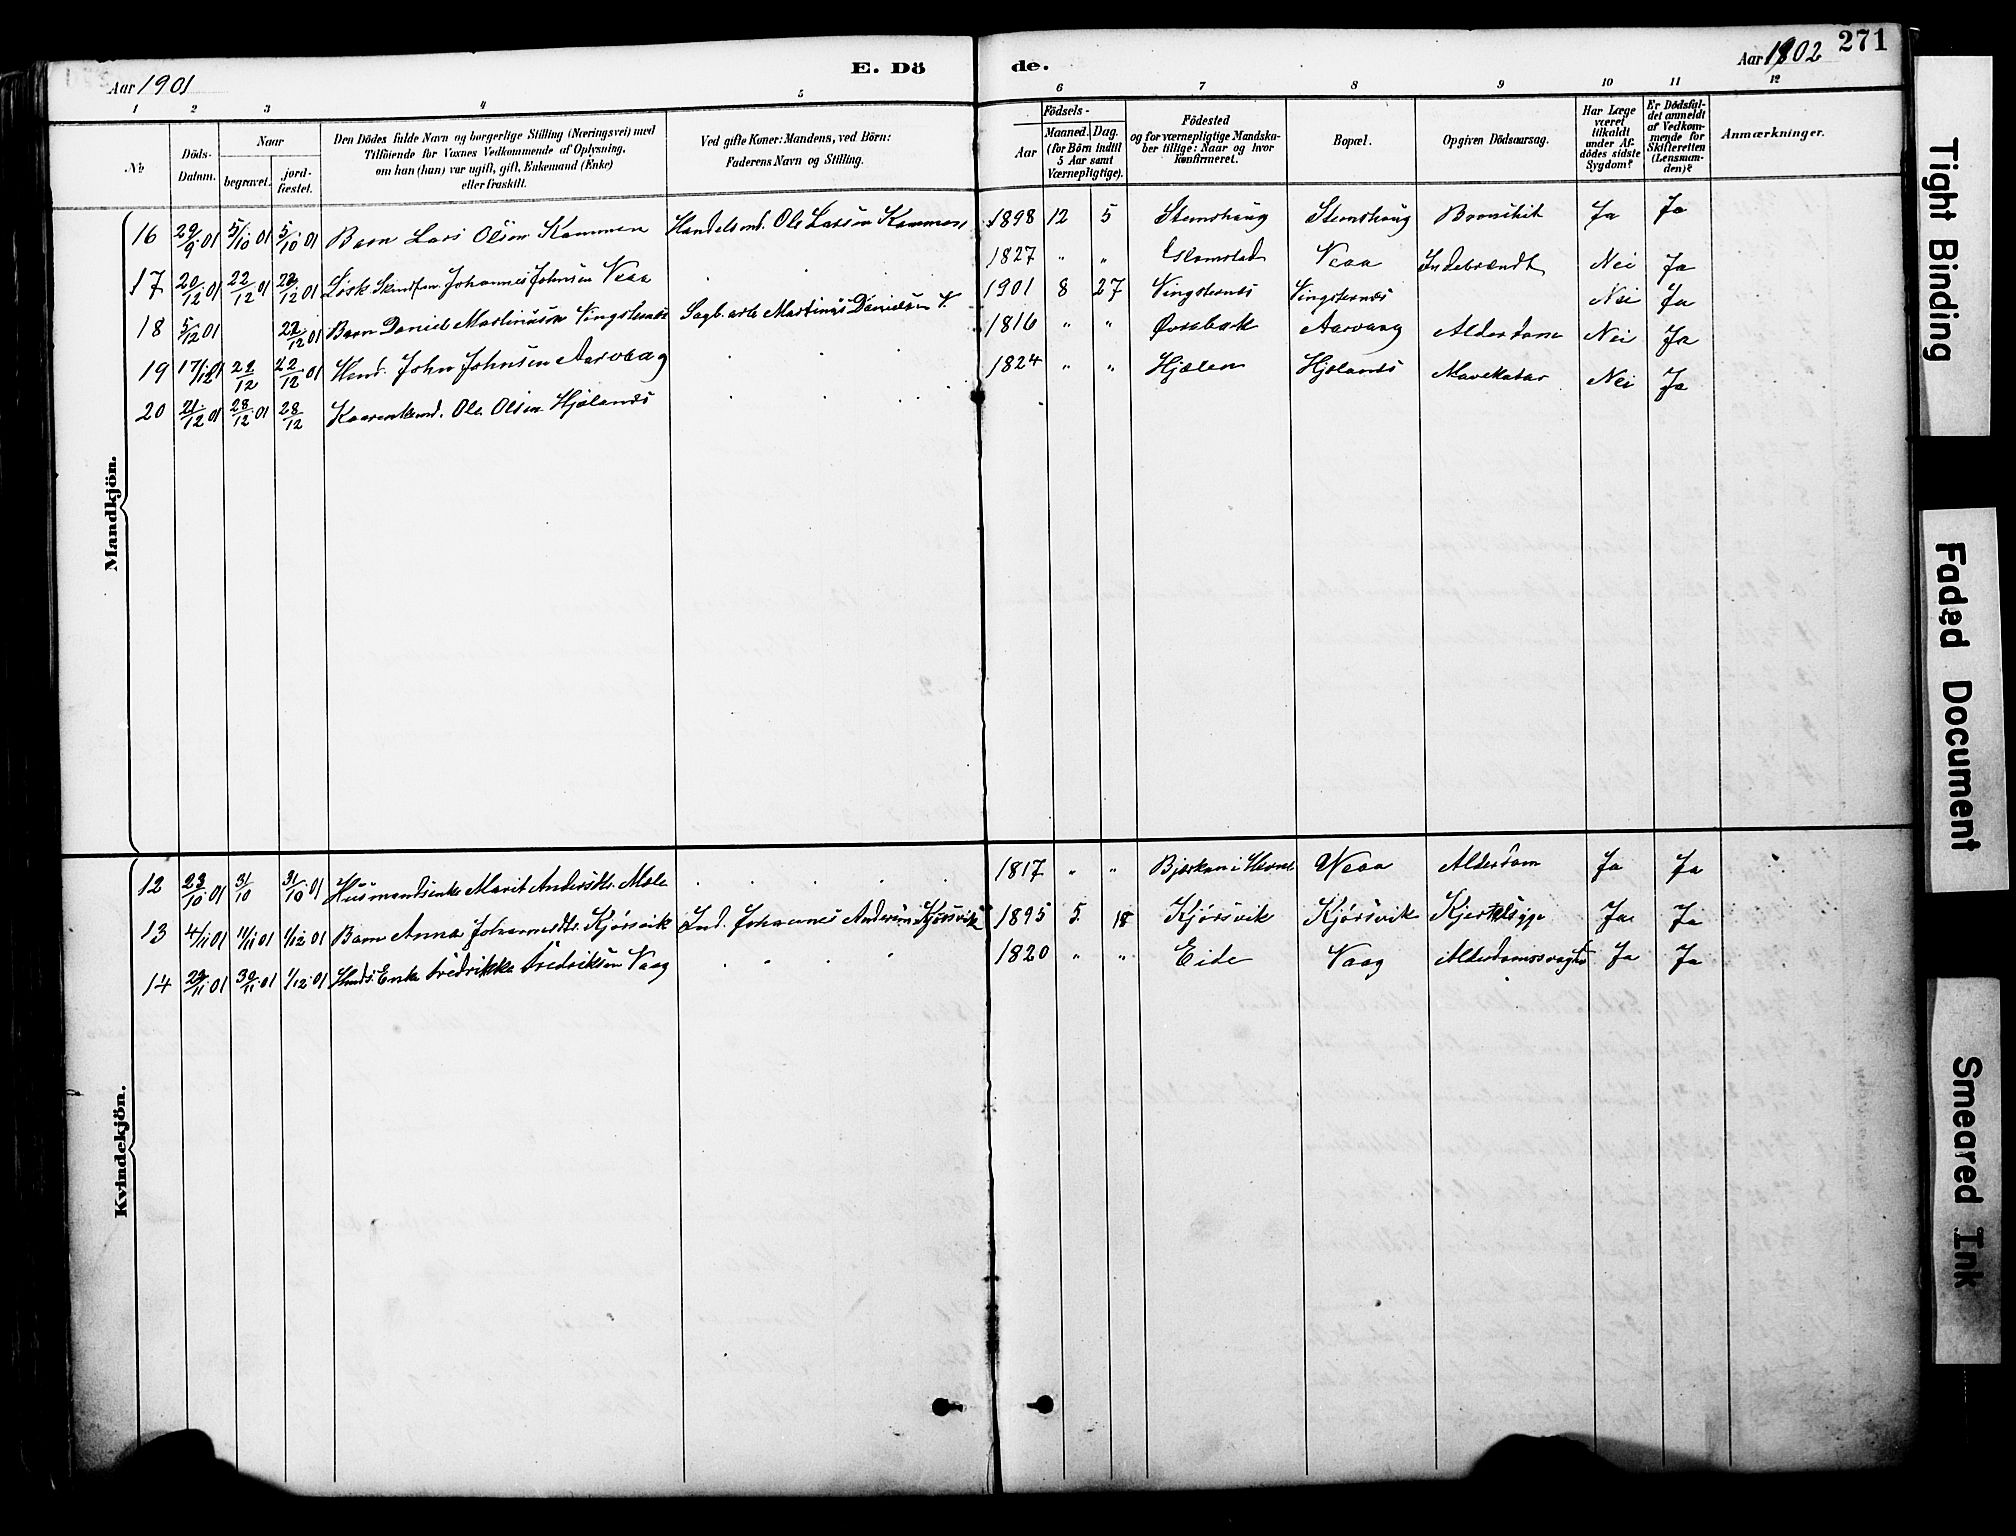 Aar 1901
E. Dö
de.
Aar 1902
271
1 2 3 4 5 6 7 8 9 10 11 12
No
Döds-Datum.
Naar
begravet.
jordfæstet.
Den Dödes fulde Navn og borgerlige Stilling (Næringsvei) med
Tilföiende for Voxnes Vedkommende af Oplysning,
om han (hun) var ugift, gift, Enkemand (Enke)
eller fraskilt.
Ved gifte Koner: Mandens, ved Börn:
Faderens Navn og Stilling.
Födsels-
Aar
Maaned. Dag.
(for Börn indtil
5 Aar samt
Værnepligtige).
Födested
og for værnepligtige Mandskaber
tillige: Naar og hvor
konfirmeret.
Bopæl.
Opgiven Dödsaarsag.
Har Læge
været
tilkaldt
under Afdödes
sidste
Sygdom?
Er Dödsfaldet
anmeldt
af Vedkommende
for
Skifteretten
(Lensmanden)?
Anmærkninger.
Mandkjön.
16 29/9 01 5/10 01 5/10 01 Barn Lars Olsen Kammen Handelsmd. Ole Larsen Kammen 1898 12 5 Stemshaug Stemshaug Bronchit Ja Ja
17 20/12 01 22/12 01 22/12 01 Johannes Johnsen Veaa 1827 " " Veaa Nei Ja
18 5/12 01 22/12 01 Barn Daniel Martinusen Vingsternæs Martinus Danielsen V. 1901 8 27 Vingsternæs Vingsternæs Nei Ja
19 17/12 01 22/12 22/12 01 John Johnsen Aarvaag 1816 " " Aarvaag Alderdom Nei Ja
20 21/12 01 28/12 01 28/12 Ole Olsen Hjælenes 1824 " " Hjælen Hjelands Mavekatar Nei Ja
Kvindekjön.
12 23/10 01 31/10 31/10 01 Husmandsenke Marit Andersdtr. Mæle 1817 " " Veaa Alderdom Ja Ja
13 4/11 01 11/11 01 1/12 01 Barn Anna Johannesdtr. Kjørsvik Ind. Johannes Andersen Kjørsvik 1895 5 18 Kjørsvik Kjørsvik Kjertelsyge Ja Ja
14 01 30/11 01 1/12 01 Enke Fredrikke Fredriksen Vaag 1820 " " Eide Vaag Alderdomssvaghed Ja Ja
Tight Binding
Faded Document
Smeared Ink